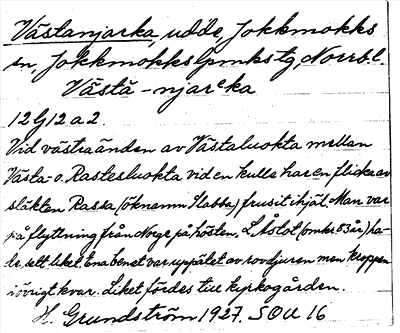 Västanjarka, udde, Jokkmokks
sn, Jokkmokks lpmkstg, Norrb.l.
Västā-njarᵉka
12G12a2.
Vid västra änden av Västaluokta mellan
Västa- o. Rastesluokta vid en kulle har en flicka av
släkten Rassa (öknamn Slabba) frusit ihjäl. Man var
på flyttning från Norge på hösten. L. Åslot (omkr 53 år) ha-
de sett liket. Ena benet var uppätet av rovdjuren men kroppen
i övrigt kvar. Liket fördes till kyrkogården.
H. Grundström 1927. SOU 16